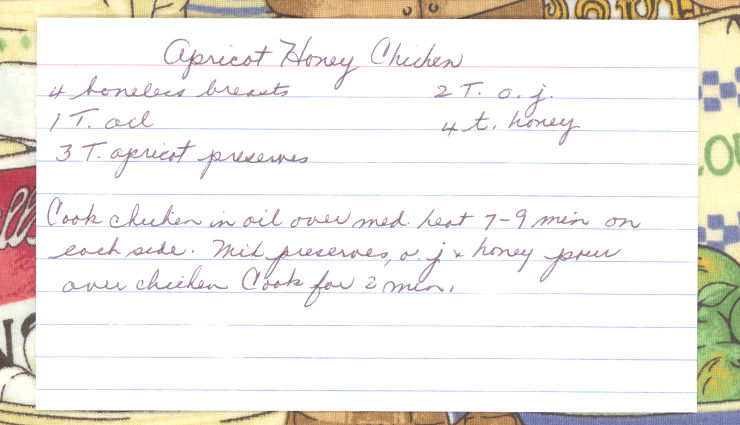 Apricot Honey Chicken
4 boneless breasts 2 T. o.j.
1 T. oil 4 t. honey
3 T. apricot preserves
Cook chicken in oil over med. heat 7-9 min on
each side. Mix preserves, o.j & honey pour
over chicken Cook for 2 min.